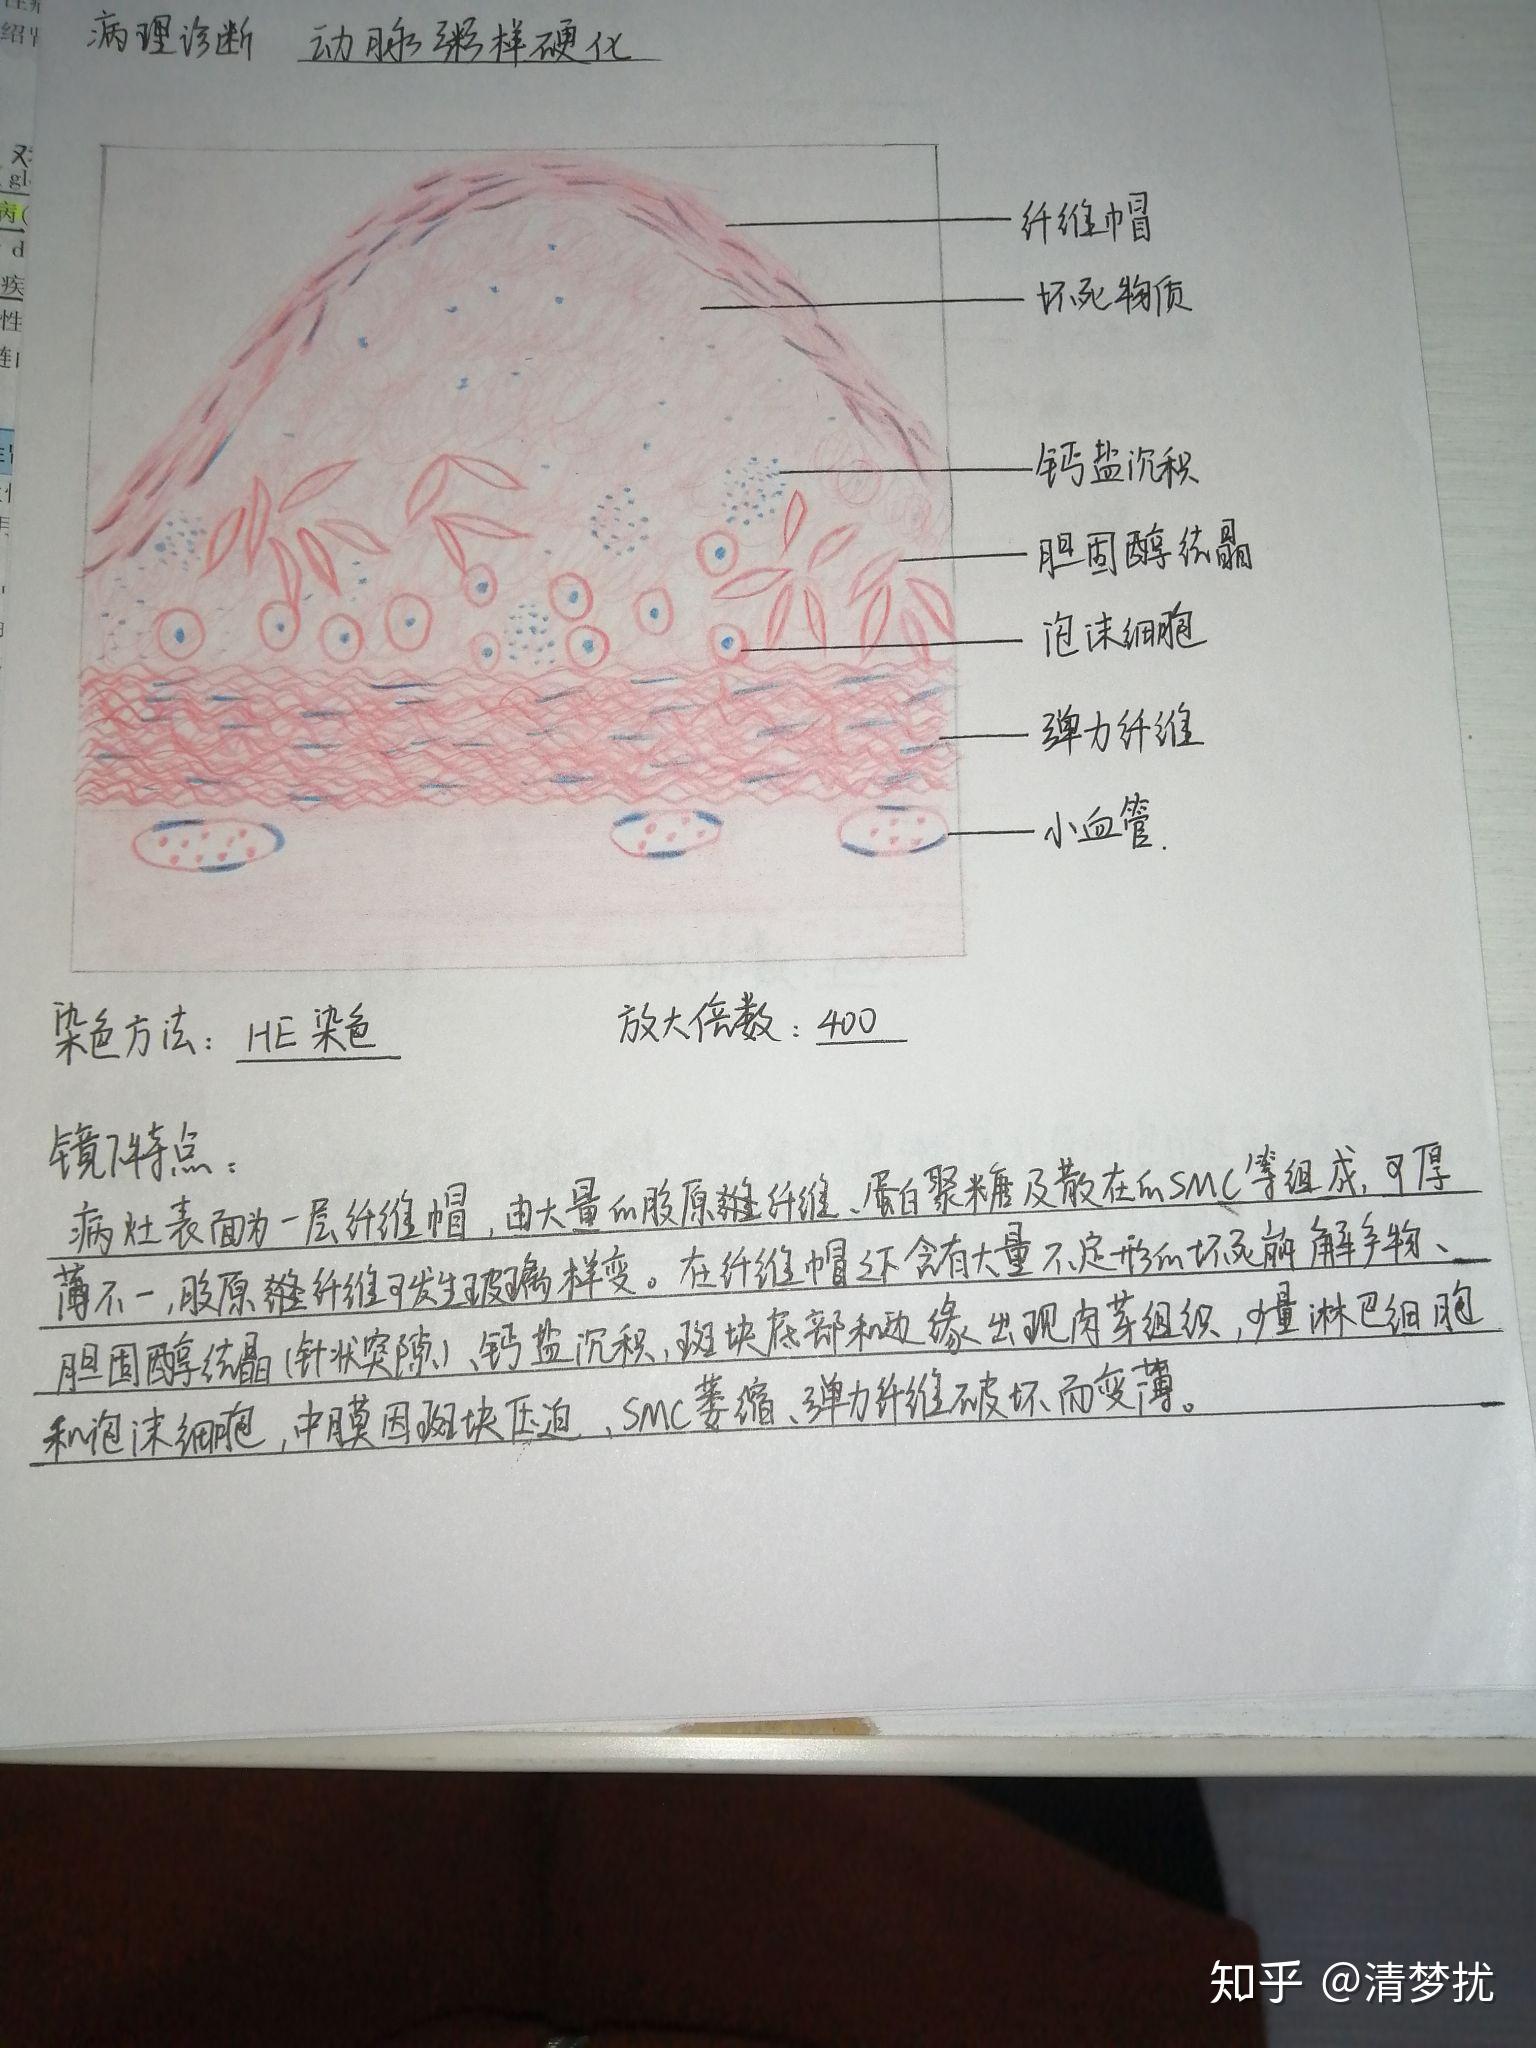 病理诊断 动脉粥样硬化
纤维帽
坏死物质
钙盐沉积
胆固醇结晶
泡沫细胞
弹力纤维
小血管.
染色方法: HE染色 放大倍数: 400
镜下特点:
病灶表面为一层纤维帽,由大量的胶原纤维、蛋白聚糖及散在的SMC等组成,可厚
薄不一,胶原纤维可发生玻璃样变。在纤维帽之下含有大量不定形的坏死崩解产物、
胆固醇结晶(针状突隙)、钙盐沉积,斑块底部和边缘出现肉芽组织,少量淋巴细胞
和泡沫细胞,中膜因斑块压迫、SMC萎缩、弹力纤维破坏而变薄。
知乎 @清梦扰